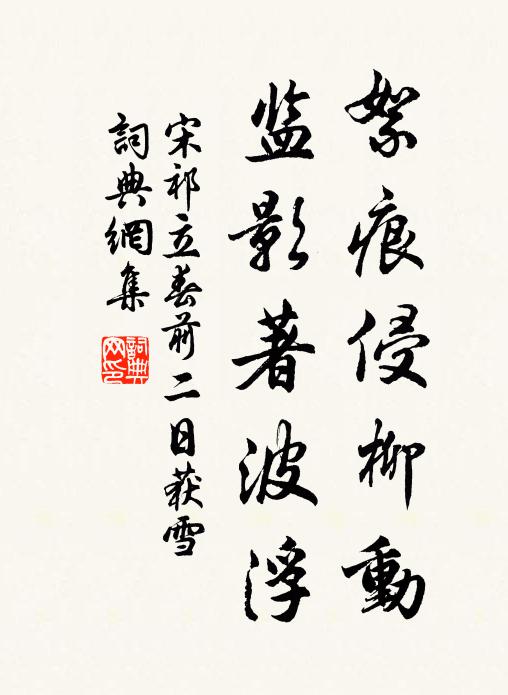 絮痕侵柳動
监影著波浮
宋祁立春前二日获雪
詞典網集
詞典网印